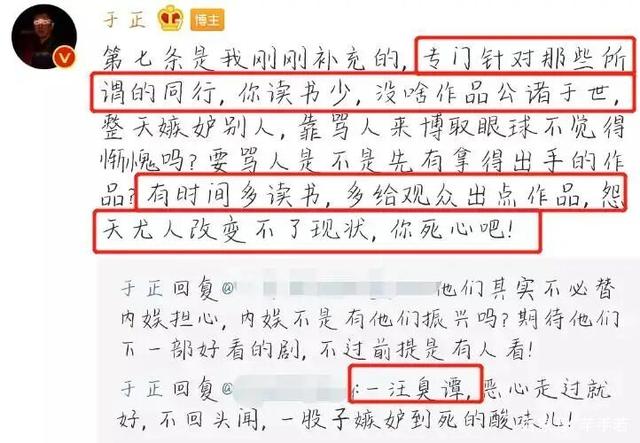 于正 博主
第七条是我刚刚补充的,专门针对那些所
谓的同行,你读书少,没啥作品公诸于世,
整天嫉妒别人,靠骂人来博取眼球不觉得
惭愧吗?要骂人是不是先有拿得出手的作
品?有时间多读书,多给观众出点作品,怨
天尤人改变不了现状,你死心吧!
于正回复@ 他们其实不必替
内娱担心,内娱不是有他们振兴吗?期待他们
下一部好看的剧,不过前提是有人看!
于正回复@ :一汪臭谭,恶心走过就
好,不回头闻,一股子嫉妒到死的酸味儿!